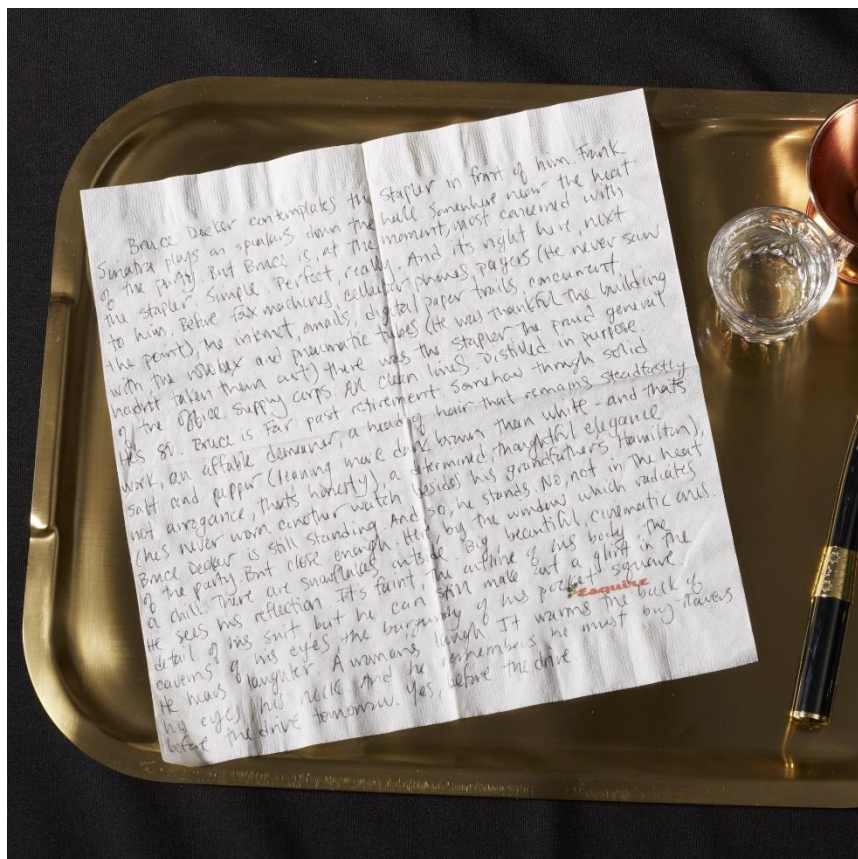 Bruce Decker contemplates the stapler in front of him. Frank
Sinatra plays on speakers down the hall. Somewhere near the heat
of the party. But Bruce is, at the moment, most concerned with
the stapler. Simple. Perfect, really. And its right here, next
to him. Before fax machines, cellular phones, pagers (He never saw
the point), the internet, emails, digital paper trails, concurrent
with the rolodex and pneumatic tubes (He was thankful the building
hadn't taken them out) there was the stapler the proud general
of the office supply corps. All clean lines. Distilled in purpose.
He's 80. Bruce is far past retirement. Somehow through solid
work, an affable demeanor, a head of hair that remains steadfastly
salt and pepper (leaning more dark brown than white - and thats
not arrogance, thats honesty), a determined, thoughtful elegance
(he's never worn another watch besides his grandfather's Hamilton),
Bruce Decker is still standing. And so, he stands. No, not in the heat
of the party. But close enough. Here by the window which radiates
a chill. There are snowflakes outside. Big, beautiful, cinematic ones.
He sees his reflection. It's faint. The outline of his body, the
detail of his suit but he can still make out a glint in the
caverns of his eyes the burgundy of his pocket square.
Esquire
He hears laughter. A womans laugh. It warms the back of
his neck. And he remembers he must buy flowers
before the drive tomorrow. Yes, before the drive.